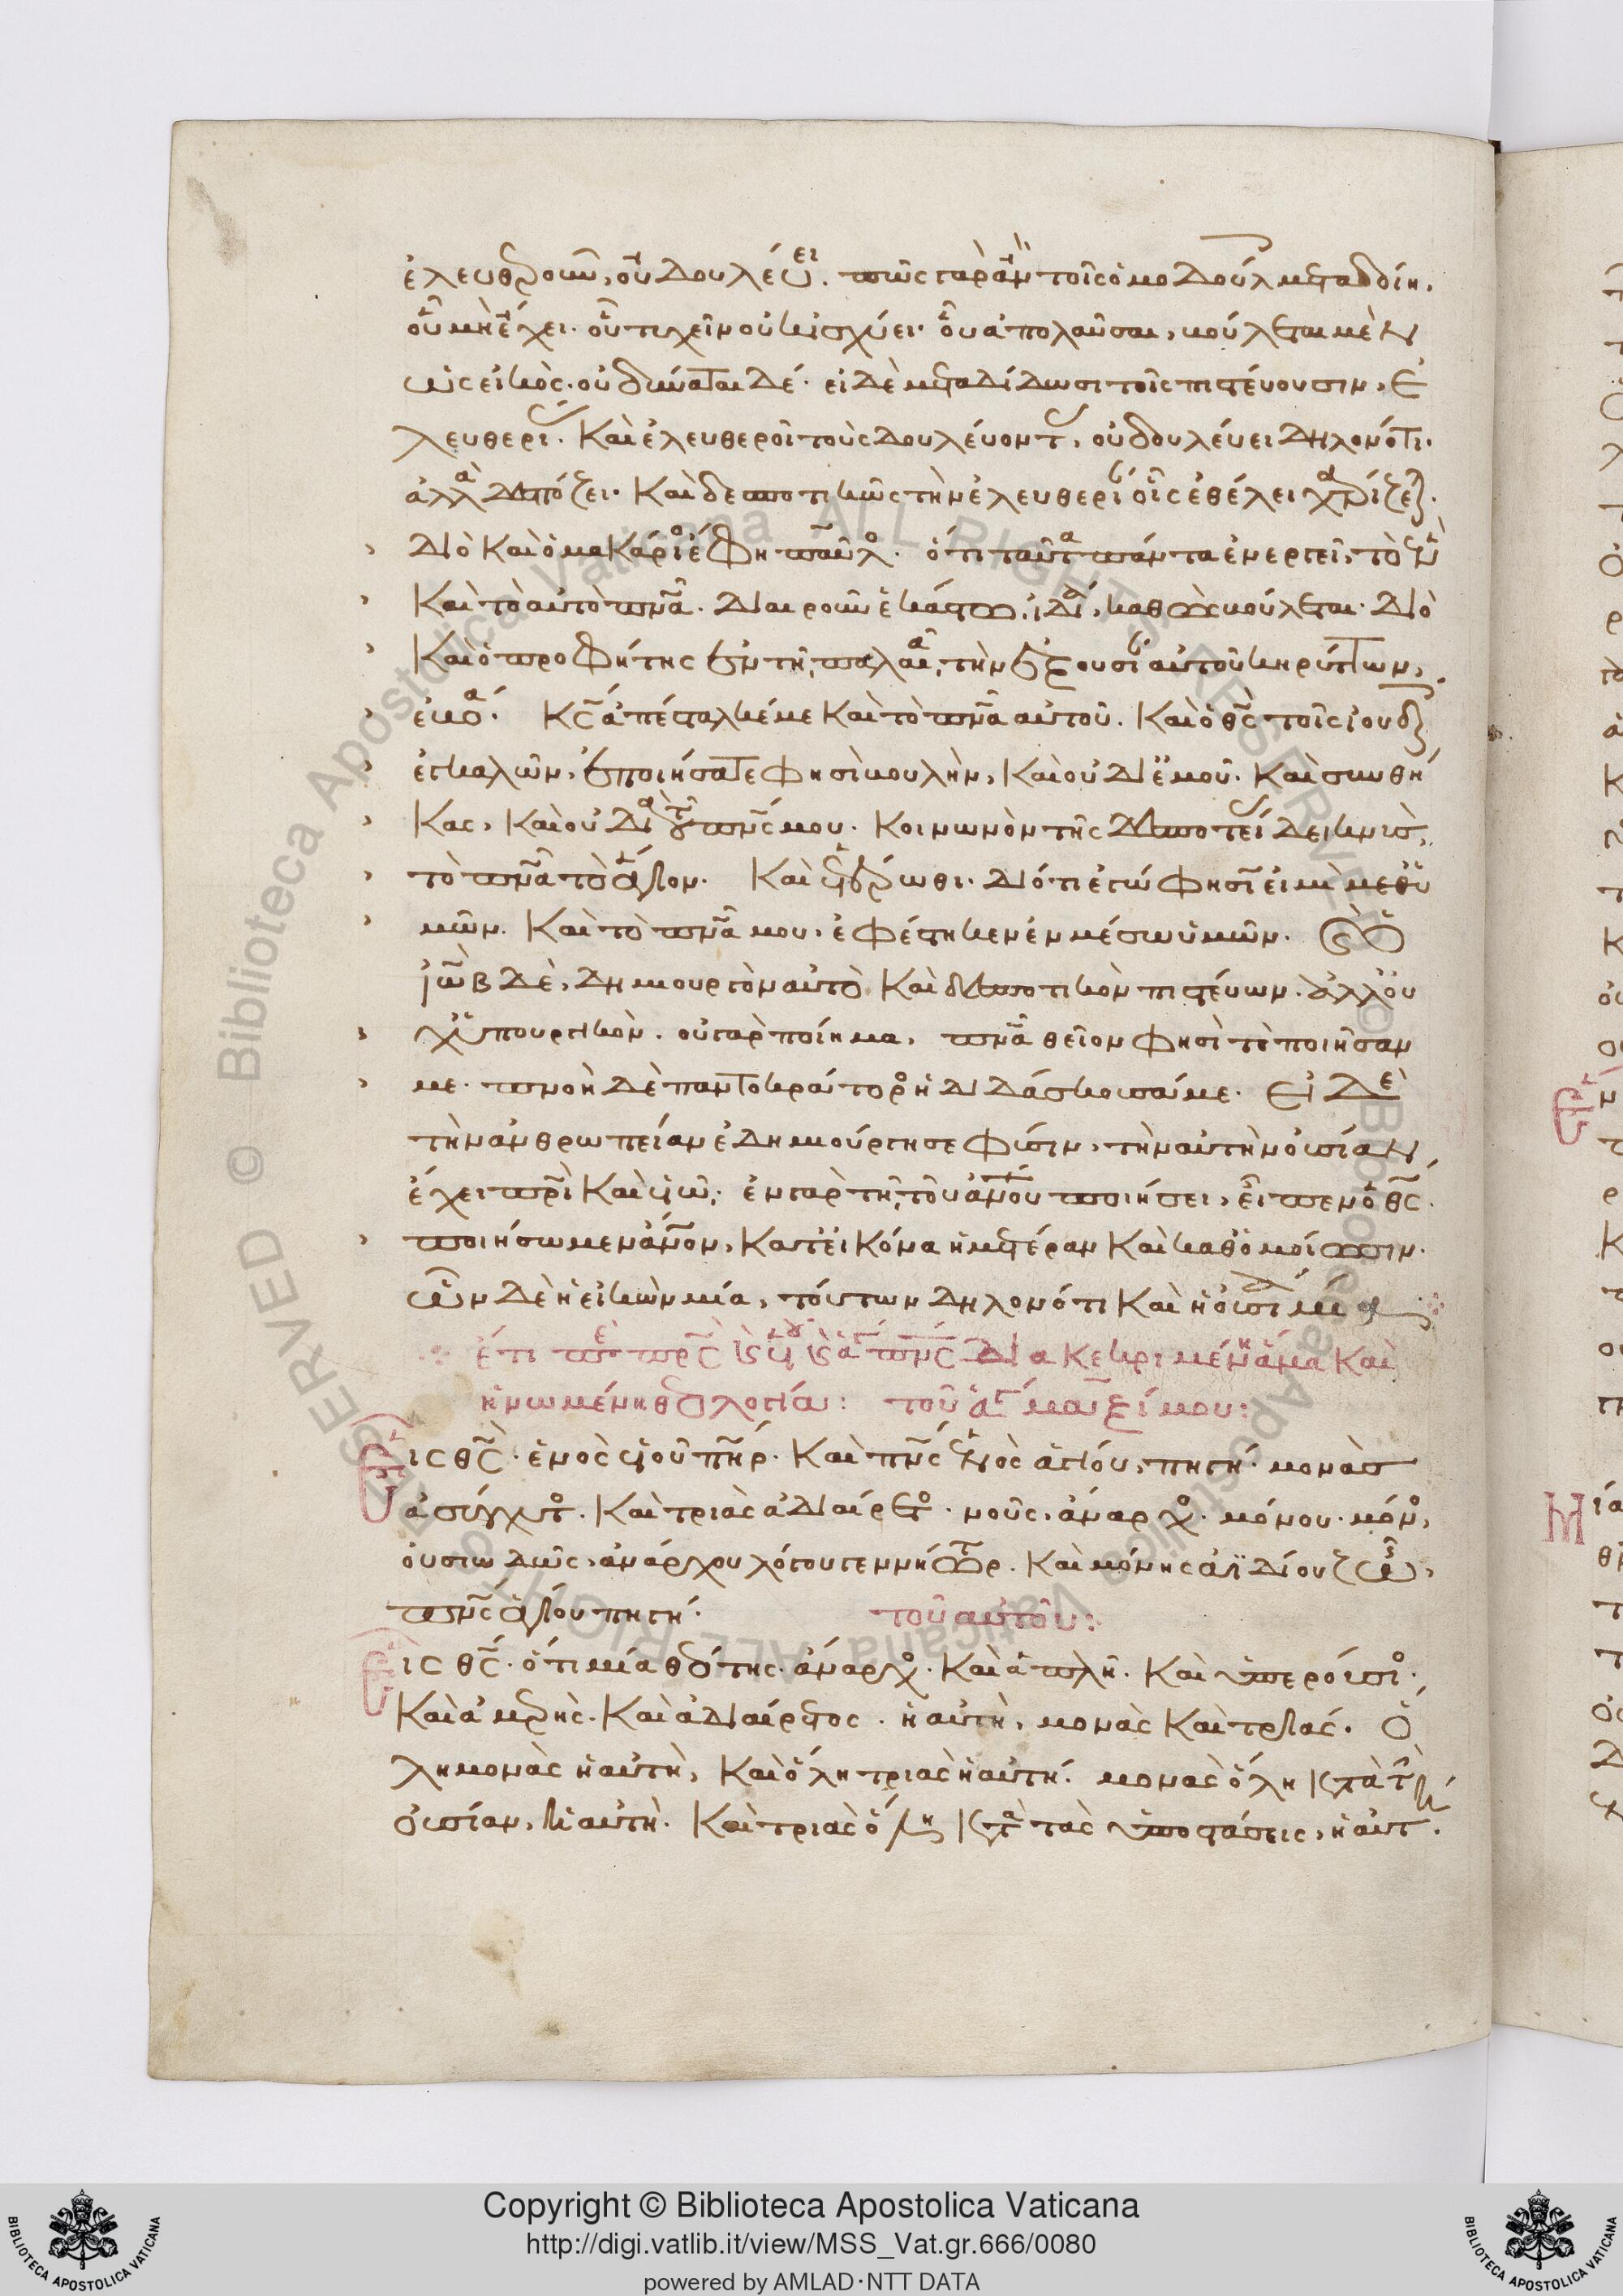 ἐλευθεροῦν, οὐ δουλεύει. πῶς γὰρ ἂν τοῖς ὁμοδούλοις μεταδοίη,
οὗ μὴ ἔχει. οὗ τυχεῖν οὐκ ἰσχύει. οὗ ἀπολαῦσαι, βούλεται μὲν
ὡς εἰκὸς. οὐ δύναται δέ. εἰ δὲ μεταδίδωσι τοῖς πιστεύουσιν, ἐ
λευθερίας. καὶ ἐλευθεροῖ τοὺς δουλεύοντας, οὐ δουλεύει δηλονότι.
ἀλλὰ δεσπόζει. καὶ δεσποτικῶς τὴν ἐλευθερίαν οἷς ἐθέλει χαρίζεται.
διὸ καὶ ὁ μακάριος ἔφη παῦλος. ὅτι ταῦτα πάντα ἐνεργεῖ, τὸ ἓν
καὶ τὸ αὐτὸ πνεῦμα. διαιροῦν ἑκάστῳ ἰδίᾳ, καθὼς βούλεται. διὸ
καὶ ὁ προφήτης ἐν τῇ παλαιᾷ, τὴν ἐξουσίαν αὐτοῦ κηρύττων,
ἐβόα. κς ἀπέσταλκέ με καὶ τὸ πνα αὐτοῦ. καὶ ὁ θς τοῖς ἰουδαίοις
ἐγκαλῶν, ἐποιήσατε φησὶ βουλὴν, καὶ οὐ δι' ἐμοῦ. καὶ συνθή
κας, καὶ οὐ διὰ τοῦ πνς μου. κοινωνὸν τῆς δεσποτείας δεικνὺς,
τὸ πνα τὸ ἅγιον. καὶ
μῶν. καὶ τὸ πνα μου, ἐφέστηκεν ἐν μέσῳ ὑμῶν. ὁ
ἰὼβ δὲ, δημιουργὸν αὐτὸ καὶ δεσποτικὸν πιστεύων. ἀλλ' οὐ
χ' ὑπουργικὸν. οὐ γὰρ ποίημα, πνα θεῖον φησὶ τὸ ποιῆσαν
με. πνοὴ δὲ παντοκράτορος ἡ διδάσκουσά με. εἰ δὲ
τὴν ἀνθρωπείαν ἐδημιούργησε φύσιν, τὴν αὐτὴν οὐσίαν
ἔχει πρι καὶ υἱῷ. ἐν γὰρ τῇ τοῦ ἀνου ποιήσει, εἶπεν ὁ θς.
ποιήσωμεν ἀνον, κατ' εἰκόνα ἡμετέραν καὶ καθ' ὁμοίωσιν.
ὧν δὲ ἡ εἰκὼν μία, τούτων δηλονότι καὶ ἡ οὐσία μία
ἔτι περὶ πρς καὶ υἱοῦ καὶ ἁγίου πνς διακεκριμένη ἅμα καὶ
ἡνωμένη θεολογία: τοῦ ἁγίου μαξίμου:
Εἷς θς. ἑνὸς υἱοῦ πηρ. καὶ πνς ἑνὸς ἁγίου, πηγή. μονὰς
ἀσύγχυτος. καὶ τριὰς ἀδιαίρετος. νοῦς, ἄναρχος. μόνου. μόνος,
οὐσιωδῶς, ἀνάρχου λόγου γεννήτωρ. καὶ μόνης ἀϊδίου ζωῆς,
πνς ἁγίου πηγή. τοῦ αὐτοῦ:
Εἷς θς. ὅτι μία θεότης. ἄναρχος. καὶ ἁπλῆ. καὶ ὑπερούσιος.
καὶ ἀμερὴς. καὶ ἀδιαίρετος. ἡ αὐτὴ, μονὰς καὶ τριάς. ὅ
λη μονὰς ἡ αὐτὴ, καὶ ὅλη τριὰς ἡ αὐτή. μονὰς ὅλη κατὰ τὴν
οὐσίαν, ἡ αὐτὴ. καὶ τριὰς ὅλη κατὰ τὰς ὑποστάσεις, ἡ αὐτή.
Copyright © Biblioteca Apostolica Vaticana
http://digi.vatlib.it/view/MSS_Vat.gr.666/0080
powered by AMLAD·NTT DATA